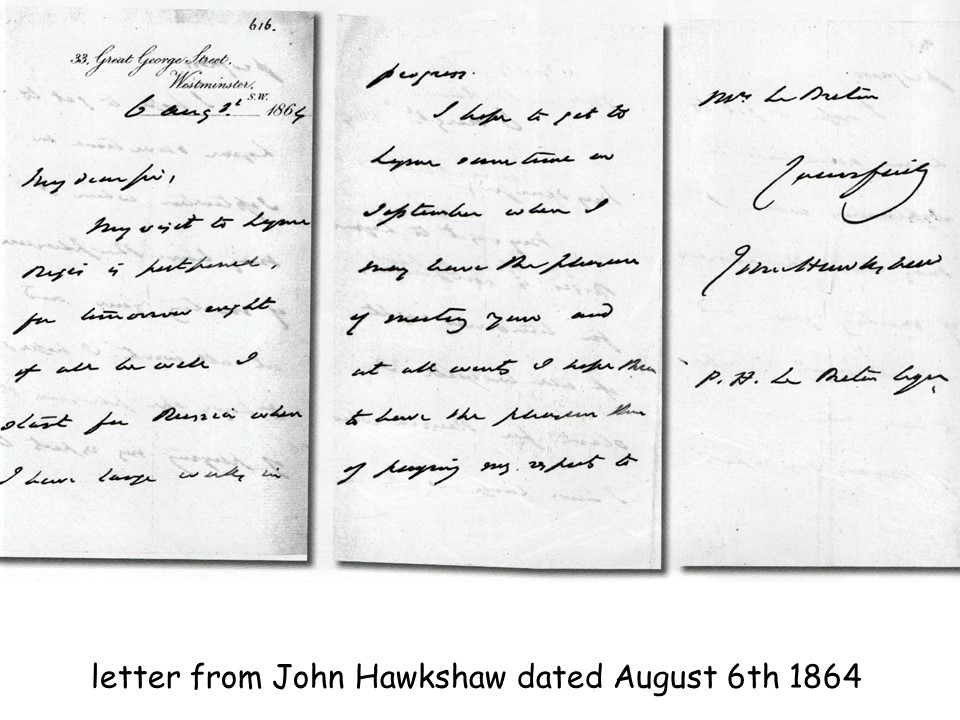 616.
33, Great George Street.
Westminster.
S.W.
6 Augst. 1864
My dear Sir,
My visit to Lyme
Regis is postponed,
for tomorrow night
if all be well I
start for Russia where
I have large works in
progress.
I hope to get to
Lyme some time in
September when I
may have the pleasure
of meeting you and
at all events I hope then
to have the pleasure
of paying my respects to
Mrs Le Breton
Yours faithfully
John Hawkshaw
P. H. Le Breton Esqre
letter from John Hawkshaw dated August 6th 1864